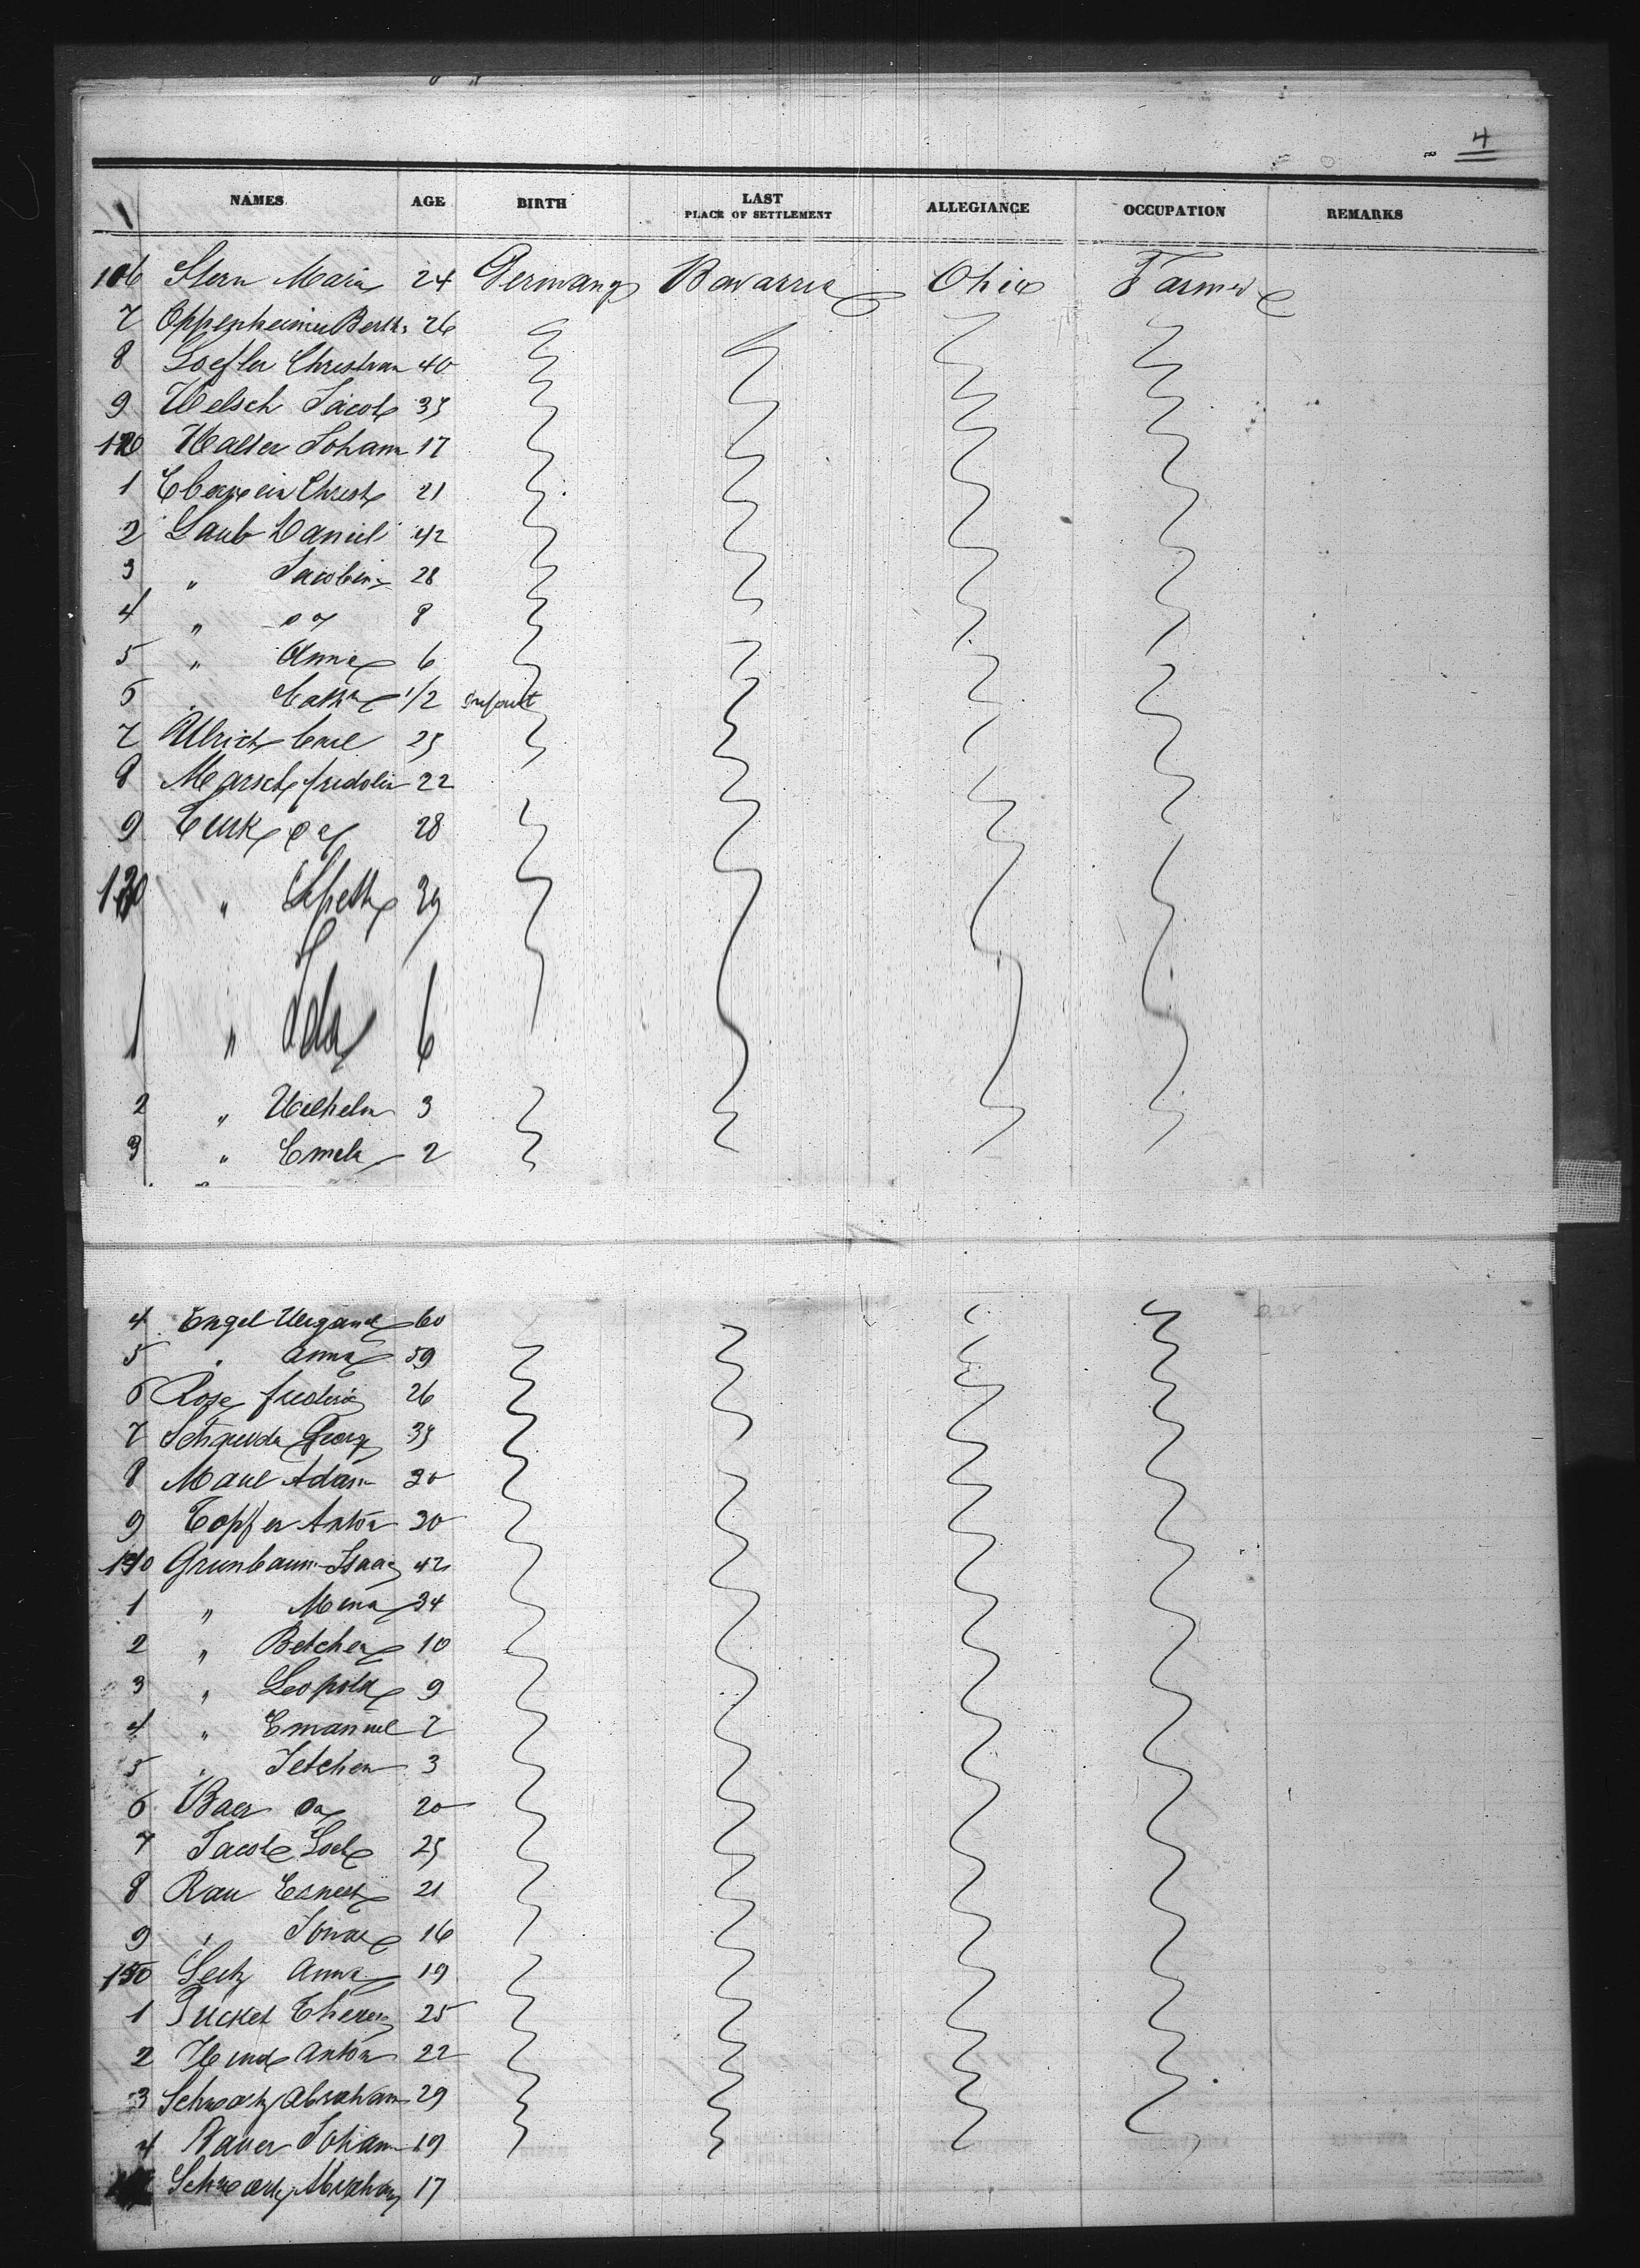 4
NAMES AGE BIRTH LAST PLACE OF SETTLEMENT ALLEGIANCE OCCUPATION REMARKS
106 Stern Maria 24 Germany Bavarria Ohio Farmer
7 Oppenheimer Bertha 26
8 Loefler Christian 40
9 Welsch Jacob 35
110 Walter Johann 17
1 Christ 21
2 Laub Daniel 42
3 " Jacobine 28
4 " 8
5 " Anna 6
6 " 1/2 Infant
7 Ullrich Carl 25
8 Marsch fridolin 22
9 Turk 28
130 " 39
1 " Ida 6
2 " Wilhelm 3
3 " Emela 2
4 Engel 60
5 " Anna 59
6 Rose frederic 26
7 Schneider Georg 35
8 Maul Adam 30
9 Topfer Anton 30
140 Grunbaum Isaac 42
1 " Mina 34
2 " Betchen 10
3 " Leopold 9
4 " Emanuel 7
5 " Jetchen 3
6 Baer 20
7 Jacob Loeb 25
8 Rau Ernest 21
9 " Jonas 16
150 Anna 19
1 Theresa 25
2 Anton 22
3 Schwartz Abraham 29
4 Bauer Johann 19
Schwartz Abraham 17